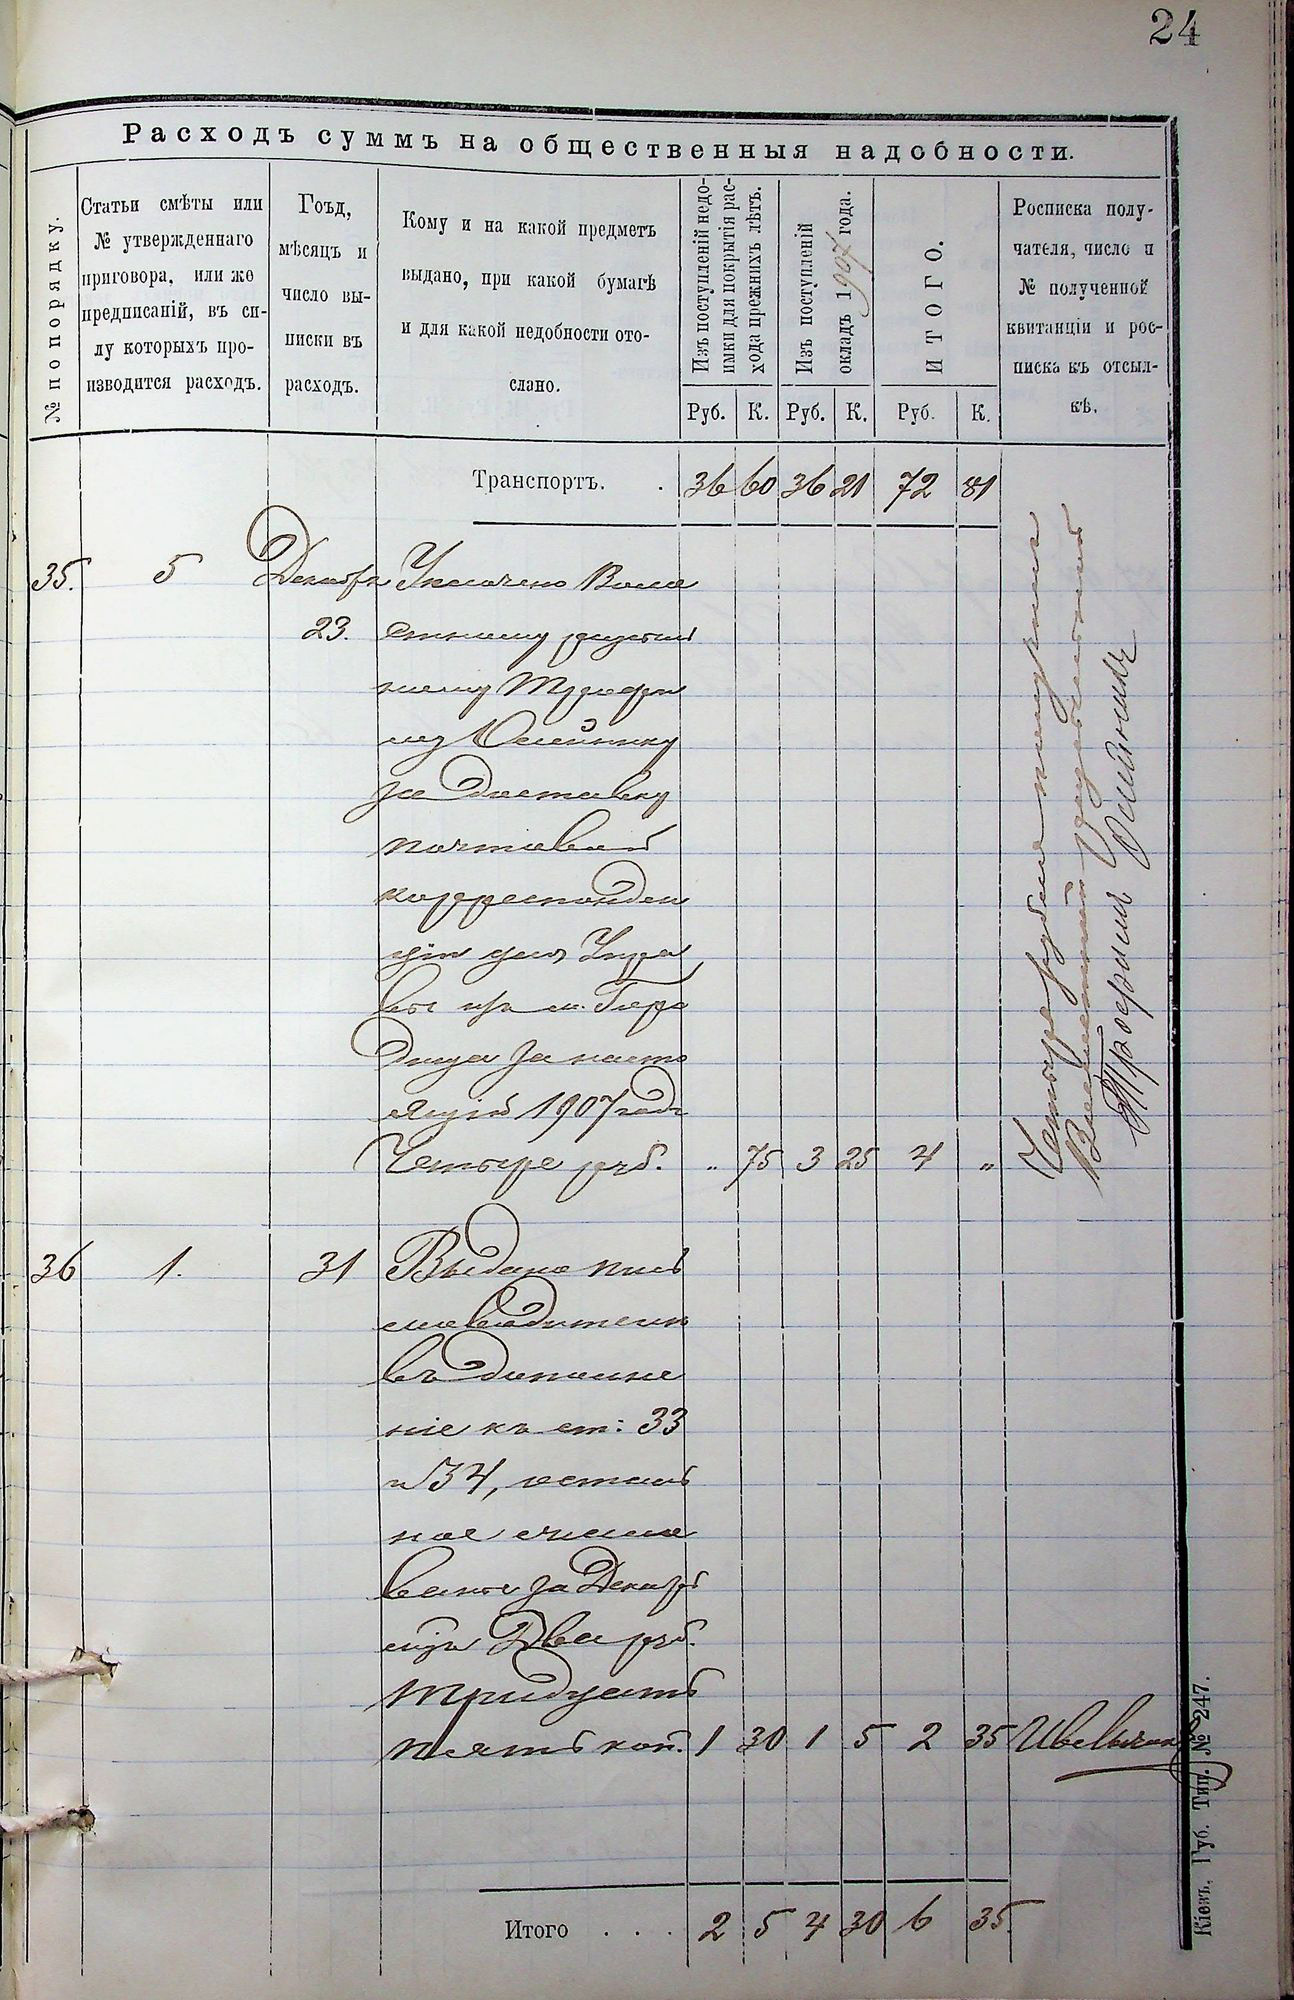 24
Расходъ суммъ на общественныя надобности.
№ по порядку.
Статьи смѣты или
№ утвержденнаго
приговора, или же
предписаній, въ си-
лу которыхъ про-
изводится расходъ.
Гоъд,
мѣсяцъ и
число вы-
писки въ
расходъ.
Кому и на какой предметъ
выдано, при какой бумагѣ
и для какой недобности ото-
слано.
Изъ поступленій недо-
имки для покрытія рас-
хода прежнихъ лѣтъ.
Изъ поступленій
окладъ 1907 года.
ИТОГО.
Росписка полу-
чателя, число и
№ полученной
квитанціи и рос-
писка къ отсыл-
кѣ.
Руб. К. Руб. К. Руб. К.
Транспортъ. . 36 60 36 21 72 81
35. 5 Декабря Уплочено Воло
23. стному разсыль
ному Трофи
му Олейнику
за доставку
почтовой
корреспонден
ціи для Упра
вы изъ м. Горо
дища за насто
ящій 1907 годъ
Четыре руб. „ 75 3 25 4 „
Четыре рубля получилъ
Волостной
Трофимъ Олейникъ
36 1. 31 Выдано пись
моводителю
въ дополне
ніе къ ст: 33
и 34, осталь
ное жалова
ванье за Декабрь
мцъ Два руб.
тридцать
пять коп. 1 30 1 5 2 35
Итого . . . 2 5 4 30 6 35.
Кіевъ, Губ. Тип. № 247.